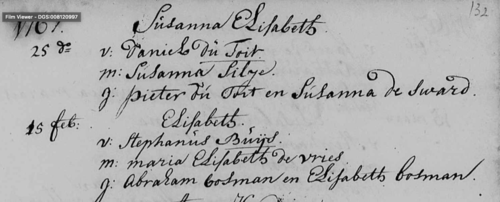 Film Viewer - DGS:008120997
132
1761. Susanna Elisabeth
25 do v: Daniel du Toit
m: Susanna Silje.
g: Pieter du Toit en Susanna de Sward.
15 feb: Elisabeth.
v: Stephanus Buijs.
m: maria Elisabeth de vries
g: Abraham Cosman en Elisabeth Cosman.